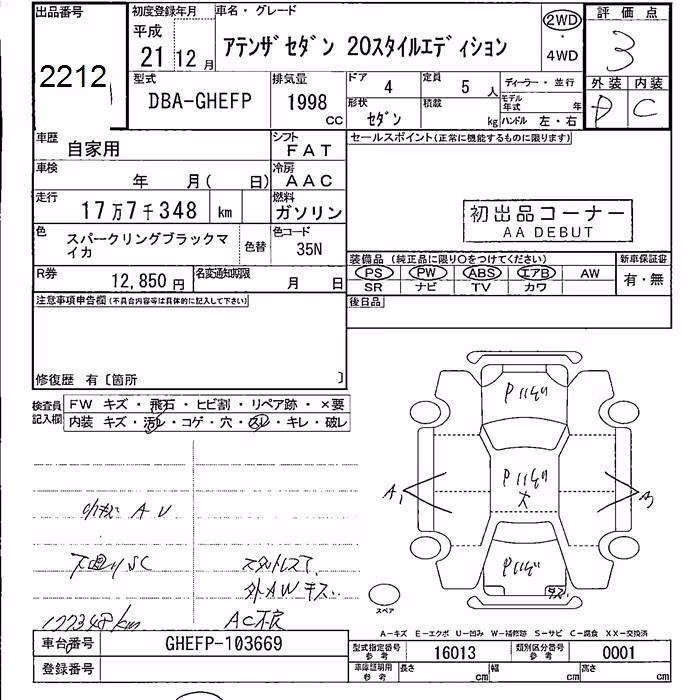 出品番号
2212
初度登録年月
平成
21 12月
車名・グレード
アテンザセダン 20スタイルエディション
2WD
・
4WD
評価点
3
外装 内装
D C
型式
DBA-GHEFP
排気量
1998
CC
ドア
4
定員
5 人
形状
セダン
積載
kg
ディーラー・並行
モデル年式 年
ハンドル 左・右
車歴
自家用
シフト
FAT
セールスポイント(正常に機能するものに限ります)
車検
年 月( 日)
冷房
AAC
走行
17万7千348 km
燃料
ガソリン
初出品コーナー
AA DEBUT
色
スパークリングブラックマイカ
色替
色コード
35N
装備品(純正品に限り○をつけてください)
新車保証書
PS PW ABS エアB AW
SR ナビ TV カワ
有・無
R券
12,850円
名変通知期限
月 日
後日品
注意事項申告欄(不具合内容等は具体的に記入して下さい)
修復歴 有〔箇所 〕
検査員記入欄
FW キズ・飛石・ヒビ割・リペア跡・×要
内装 キズ・汚レ・コゲ・穴・スレ・キレ・破レ
A V
下回りSC
スタットレスT.
外AWキズ.
177348km
AC不良
P
P
大
P
A1
スペア
A-キズ E-エクボ U-凹み W-補修跡 S-サビ C-腐食 XX-交換済
車台番号
GHEFP-103669
型式指定番号
参考
16013
類別区分番号
参考
0001
登録番号
車庫証明用
参考
長さ cm
幅 cm
高さ cm